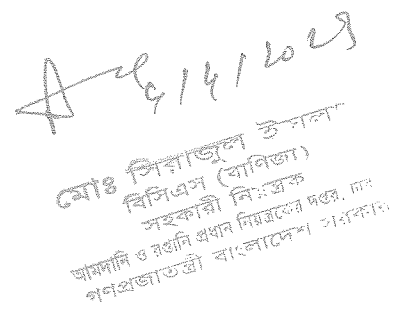 মোঃ সিরাজুল ইসলাম
বিসিএস (বাণিজ্য)
সহকারী নিয়ন্ত্রক
আমদানি ও রপ্তানি প্রধান নিয়ন্ত্রকের দপ্তর, ঢাকা
গণপ্রজাতন্ত্রী বাংলাদেশ সরকার